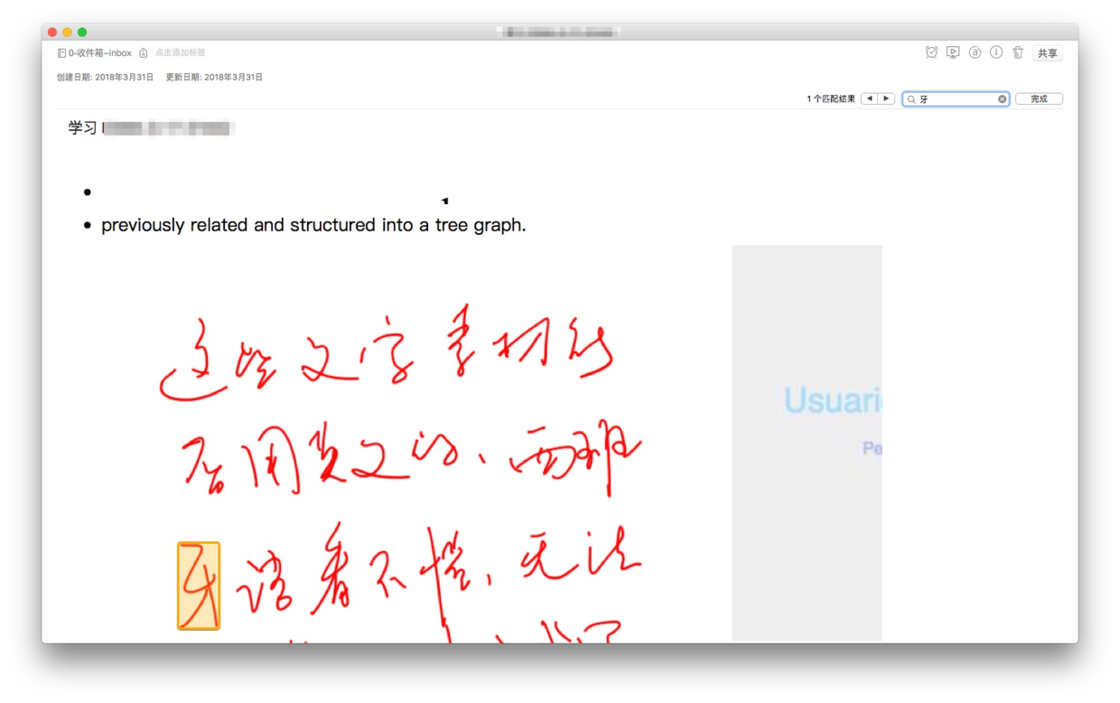 0-收件箱-Inbox 点击添加标签
共享
创建日期: 2018年3月31日 更新日期: 2018年3月31日
1 个匹配结果 牙 完成
学习
previously related and structured into a tree graph.
这些文字素材能
否用英文的、西班
牙语看不懂,无法
Usuari
Pe